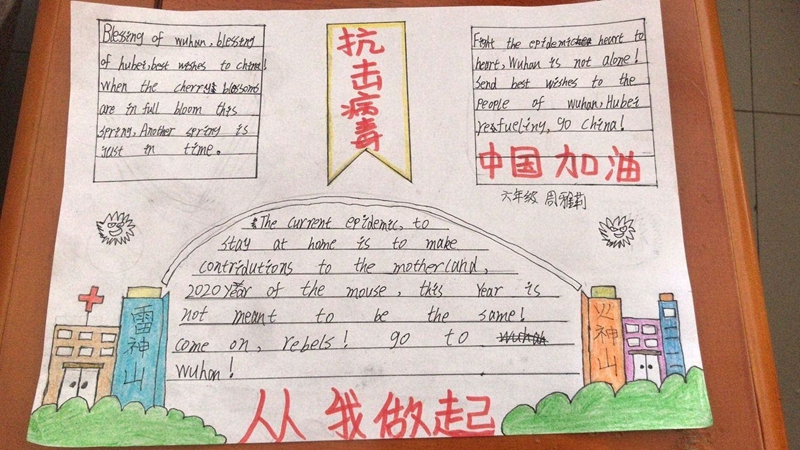 Blessing of wuhan, blessing
of hubei, best wishes to china!
When the cherry blossoms
are in full bloom this
spring, Another spring is
just in time.
抗击病毒
Fight the epidemic heart to
heart, Wuhan is not alone!
Send best wishes to the
people of wuhan, Hubei
refueling, go China!
中国加油
六年级 周雅莉
The current epidemic, to
stay at home is to make
contridutions to the motherland,
2020 year of the mouse, this year is
not meant to be the same!
come on, rebels! go to
wuhan!
雷神山
火神山
从我做起